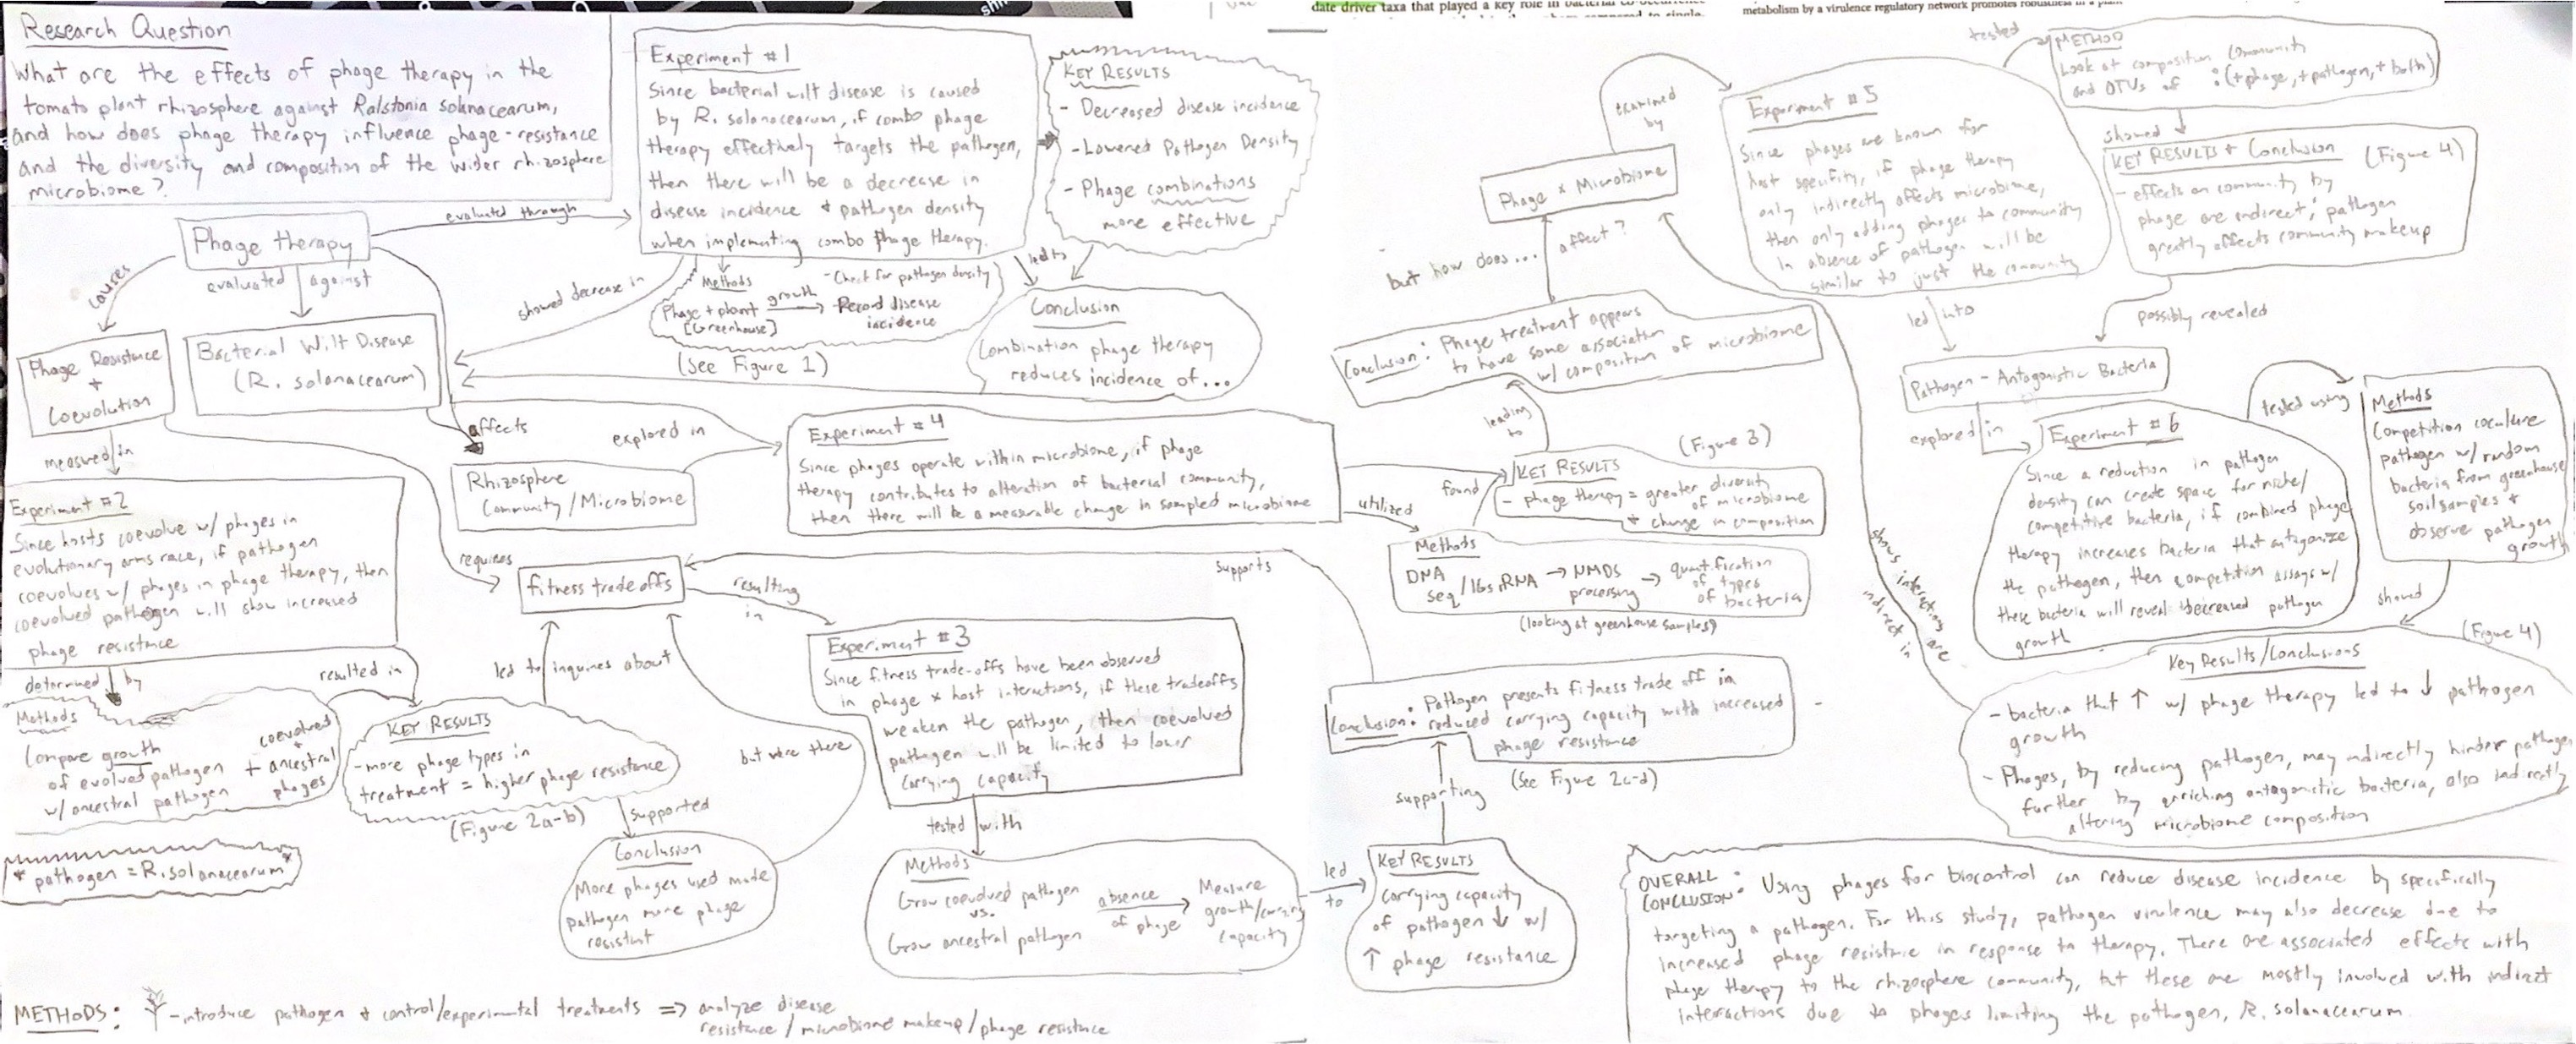 date driver taxa that played a key role in
metabolism by a virulence regulatory network promotes robustness in a
Research Question
What are the effects of phage therapy in the
tomato plant rhizosphere against Ralstonia solanacearum,
and how does phage therapy influence phage-resistance
and the diversity and composition of the wider rhizosphere
microbiome?
Phage therapy
evaluated through
causes
evaluated against
Phage Resistance
+
Coevolution
Bacterial Wilt Disease
(R. solanacearum)
Experiment #1
Since bacterial wilt disease is caused
by R. solanacearum, if combo phage
therapy effectively targets the pathogen,
then there will be a decrease in
disease incidence & pathogen density
when implementing combo phage therapy.
KEY RESULTS
- Decreased disease incidence
- Lowered Pathogen Density
- Phage combinations
more effective
showed decrease in
Methods
Phage + plant
[Greenhouse]
growth
- Check for pathogen density
- Record disease
incidence
(See Figure 1)
led to
Conclusion
Combination phage therapy
reduces incidence of...
affects
explored in
Rhizosphere
Community/Microbiome
Experiment #4
Since phages operate within microbiome, if phage
therapy contributes to alteration of bacterial community,
then there will be a measurable change in sampled microbiome
measured in
Experiment #2
Since hosts coevolve w/ phages in
evolutionary arms race, if pathogen
coevolves w/ phages in phage therapy, then
coevolved pathogen will show increased
phage resistance
determined by
Methods
Compare growth
of evolved pathogen
w/ ancestral pathogen
+
coevolved
+
ancestral
phages
* pathogen = R. solanacearum *
resulted in
KEY RESULTS
- more phage types in
treatment = higher phage resistance
(Figure 2a-b)
supported
Conclusion
More phages used made
pathogen more phage
resistant
but were there
led to inquiries about
requires
fitness trade offs
resulting
in
supports
Experiment #3
Since fitness trade-offs have been observed
in phage x host interactions, if these tradeoffs
weaken the pathogen, then coevolved
pathogen will be limited to lower
carrying capacity
tested with
Methods
Grow coevolved pathogen
vs.
Grow ancestral pathogen
absence
of phage
Measure
growth/carrying
capacity
led
to
KEY RESULTS
Carrying capacity
of pathogen ↓ w/
↑ phage resistance
supporting
Conclusion: Pathogen presents fitness trade off in
reduced carrying capacity with increased
phage resistance
(See Figure 2c-d)
utilized
found
Methods
DNA
seq/16s rRNA → NMDS
processing → quantification
of types
of bacteria
(looking at greenhouse samples)
KEY RESULTS
(Figure 3)
- phage therapy = greater diversity
of microbiome
+ change in composition
leading
to
Conclusion: Phage treatment appears
to have some association
w/ composition of microbiome
but how does... affect?
Phage x Microbiome
examined
by
Experiment #5
Since phages are known for
host specifity, if phage therapy
only indirectly affects microbiome,
then only adding phages to community
in absence of pathogen will be
similar to just the community
tested
METHOD
Look at composition community
and OTUs of : (+phage, +pathogen, + both)
showed
KEY RESULTS + Conclusion
(Figure 4)
- effects on community by
phage are indirect; pathogen
greatly affects community makeup
led into
possibly revealed
Pathogen-Antagonistic Bacteria
explored in
Experiment #6
Since a reduction in pathogen
density can create space for niche/
competitive bacteria, if combined phage
therapy increases bacteria that antagonize
the pathogen, then competition assays w/
these bacteria will reveal decreased pathogen
growth
tested using
Methods
Competition coculture
pathogen w/ random
bacteria from greenhouse
soil samples +
observe pathogen
growth
showed
(Figure 4)
Key Results/Conclusions
- bacteria that ↑ w/ phage therapy led to ↓ pathogen
growth
- Phages, by reducing pathogen, may indirectly hinder pathogen
further by enriching antagonistic bacteria, also indirectly
altering microbiome composition
shows interactions are
indirect in
OVERALL
CONCLUSION: Using phages for biocontrol can reduce disease incidence by specifically
targeting a pathogen. For this study, pathogen virulence may also decrease due to
increased phage resistance in response to therapy. There are associated effects with
phage therapy to the rhizosphere community, but these are mostly involved with indirect
interactions due to phages limiting the pathogen, R. solanacearum.
METHODS: - introduce pathogen & control/experimental treatments => analyze disease
resistance/microbiome makeup/phage resistance